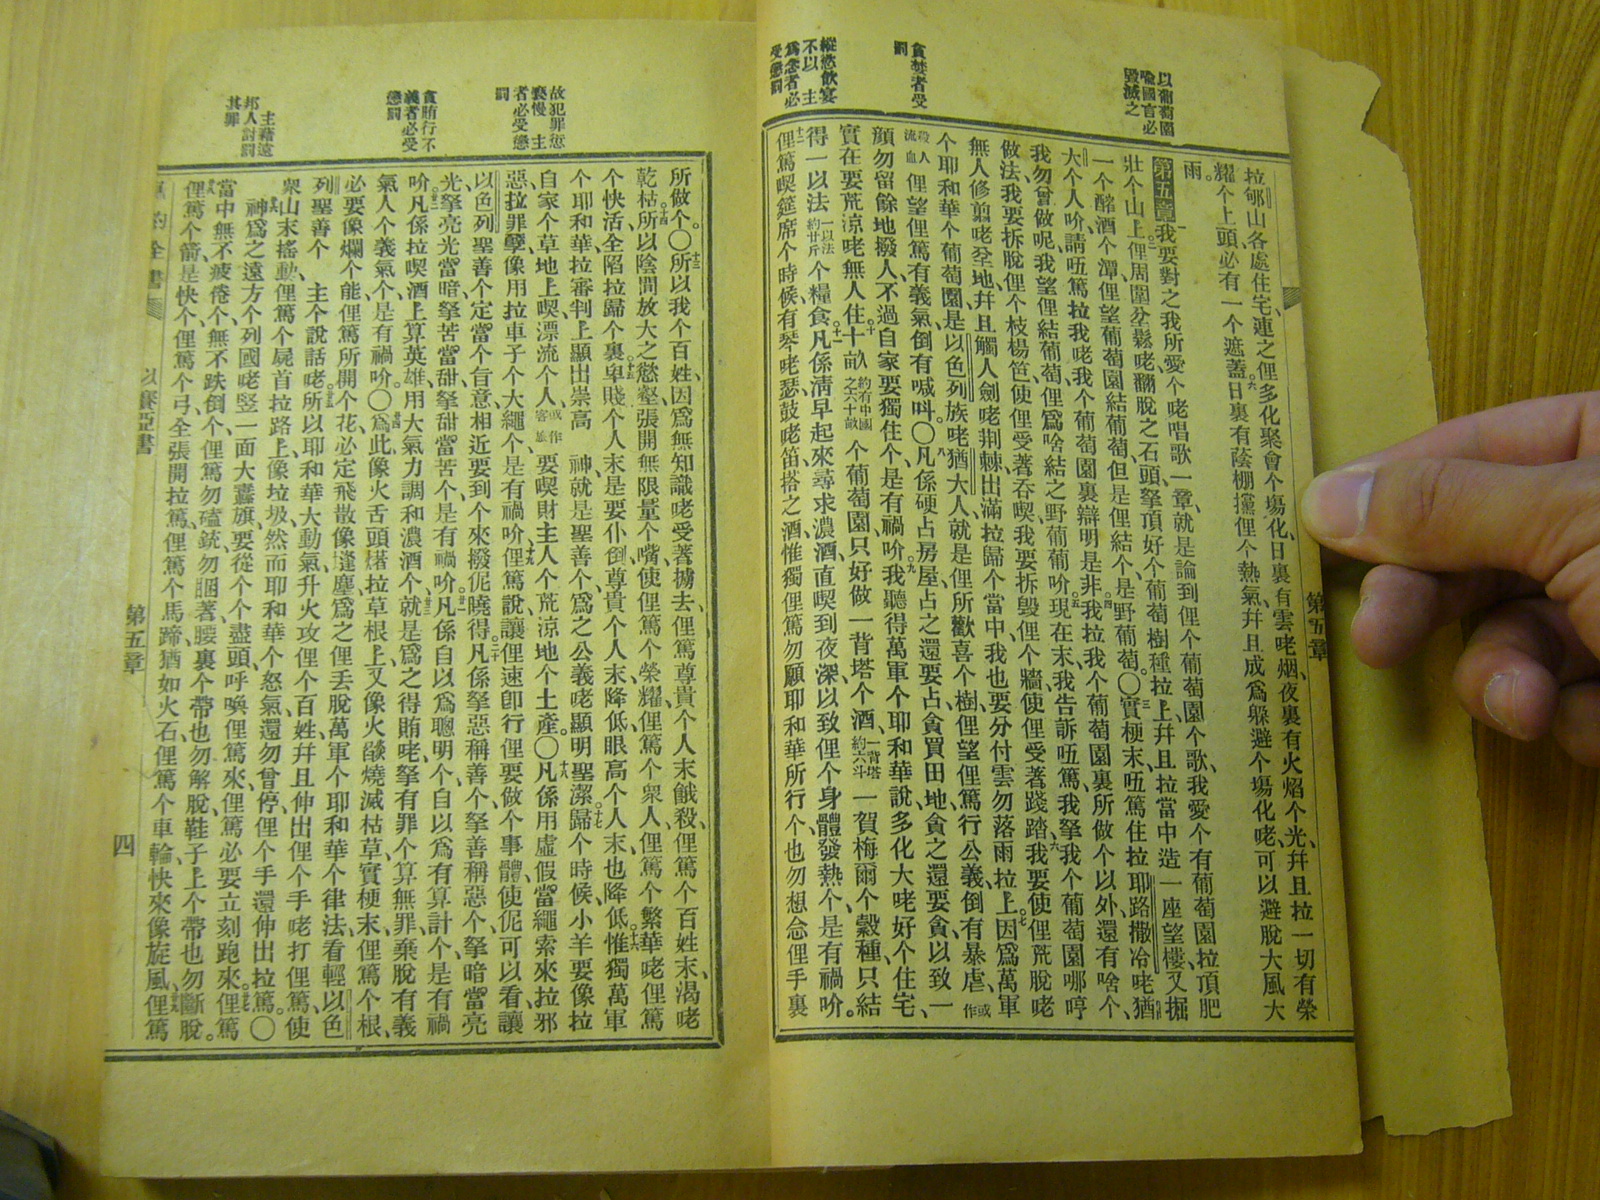 第五章
以葡萄園
喻國言必
毀滅之
貪婪者受
罰
縱慾飲宴
不以 主
爲念者必
受懲罰
拉郇山各處住宅、連之俚多化聚會个塲化、日裏有雲咾烟、夜裏有火焰个光、幷且拉一切有榮
耀个上頭、必有一个遮蓋、日裏有蔭棚攩俚个熱氣、幷且成爲躱避个塲化咾、可以避脫大風大
雨。
第五章 我要對之我所愛个咾唱歌一章、就是論到俚个葡萄園个歌、我愛个有葡萄園拉頂肥
壯个山上、俚周圍坌鬆咾翻脫之石頭、拏頂好个葡萄樹種拉上、幷且拉當中造一座望樓、又掘
一个醡酒个潭、俚望葡萄園結葡萄、但是俚結个是野葡萄。〇實梗末㑚篤住拉耶路撒冷咾猶
大个人吤、請㑚篤拉我咾我个葡萄園裏辯明是非、我拉我个葡萄園裏所做个以外、還有啥个
我勿曾做呢、我望俚結葡萄、俚爲啥結之野葡萄吤、現在末我告訴㑚篤、我拏我个葡萄園哪哼
做法、我要拆脫俚个枝楊笆、使俚受著吞喫、我要拆毀俚个牆、使俚受著踐踏、我要使俚荒脫咾
無人修剪咾坌地、幷且觸人劍咾荆棘出滿拉歸个當中、我也要分付雲勿落雨拉上、因爲萬軍
个耶和華个葡萄園、是以色列族咾、猶大人就是俚所歡喜个樹、俚望俚篤行公義、倒有暴虐、或作
殺人流血 俚望俚篤有義氣、倒有喊呌。〇凡係硬占房屋、占之還要占、貪買田地、貪之還要貪、以致一
顔勿留餘地撥人、不過自家要獨住个、是有禍吤、我聽得萬軍个耶和華說、多化大咾好个住宅、
實在要荒涼咾無人住、十畝 約有中國之六十畝 个葡萄園、只好做一背塔个酒、一背塔約六斗 一賀梅爾个穀種、只結
得一以法 一以法約廿斤 个糧食、凡係淸早起來尋求濃酒、直喫到夜深、以致俚个身體發熱个、是有禍吤。
俚篤喫筵席个時候、有琴咾瑟、鼓咾笛、搭之酒、惟獨俚篤勿顧耶和華所行个、也勿想念俚手裏
故犯罪愆
褻慢 主
者必受懲
罰
貪賄行不
義者必受
懲罰
主藉遠
邦人討罰
其罪
所做个。〇所以我个百姓、因爲無知識咾受著擄去、俚篤尊貴个人末餓殺、俚篤个百姓末、渴咾
乾枯、所以陰間放大之慾壑、張開無限量个嘴、使俚篤个榮耀、俚篤个衆人、俚篤个繁華咾俚篤
个快活、全陷拉歸个裏、卑賤个人末是要仆倒、尊貴个人末降低、眼高个人末也降低、惟獨萬軍
个耶和華、拉審判上顯出崇高、 神就是聖善个、爲之公義咾顯明聖潔、歸个時候、小羊要像拉
自家个草地上喫、漂流个人 或作客旅 要喫財主人个荒涼地个土產。〇凡係用虛假當繩索來拉邪
惡、拉罪孽像用拉車子个大繩个、是有禍吤、俚篤說、讓俚速卽行俚要做个事體、使伲可以看、讓
以色列聖善个定當个旨意相近、要到个來撥伲曉得、凡係拏惡稱善个、拏善稱惡个、拏暗當亮
光、拏亮光當暗、拏苦當甜、拏甜當苦个、是有禍吤、凡係自以爲聰明个、自以爲有算計个、是有禍
吤、凡係拉喫酒上算英雄、用大氣力調和濃酒个、就是爲之得賄咾拏有罪个算無罪、棄脫有義
氣人个義氣个、是有禍吤。〇爲此像火舌頭搭拉草根上、又像火燄燒滅枯草、實梗末、俚篤个根、
必要像爛个能、俚篤所開个花、必定飛散像逢塵、爲之俚丟脫萬軍个耶和華个律法、看輕以色
列聖善个 主个說話咾、所以耶和華大動氣、升火攻俚个百姓、幷且伸出俚个手咾打俚篤、使
衆山末搖動、俚篤个屍首拉路上像垃圾、然而耶和華个怒氣還勿曾停、俚个手還伸出拉篤。〇
 神爲之遠方个列國咾豎一面大纛旗、要從个个盡頭、呼喚俚篤來、俚篤必要立刻跑來、俚篤
當中無不疲倦个、無不跌倒个、俚篤勿磕銃、勿睏著、腰裏个帶也勿解脫、鞋子上个帶也勿斷脫。
俚篤个箭是快个、俚篤个弓全張開拉篤、俚篤个馬蹄、猶如火石、俚篤个車輪、快來像旋風、俚篤
舊約全書
以賽亞書
第五章
四